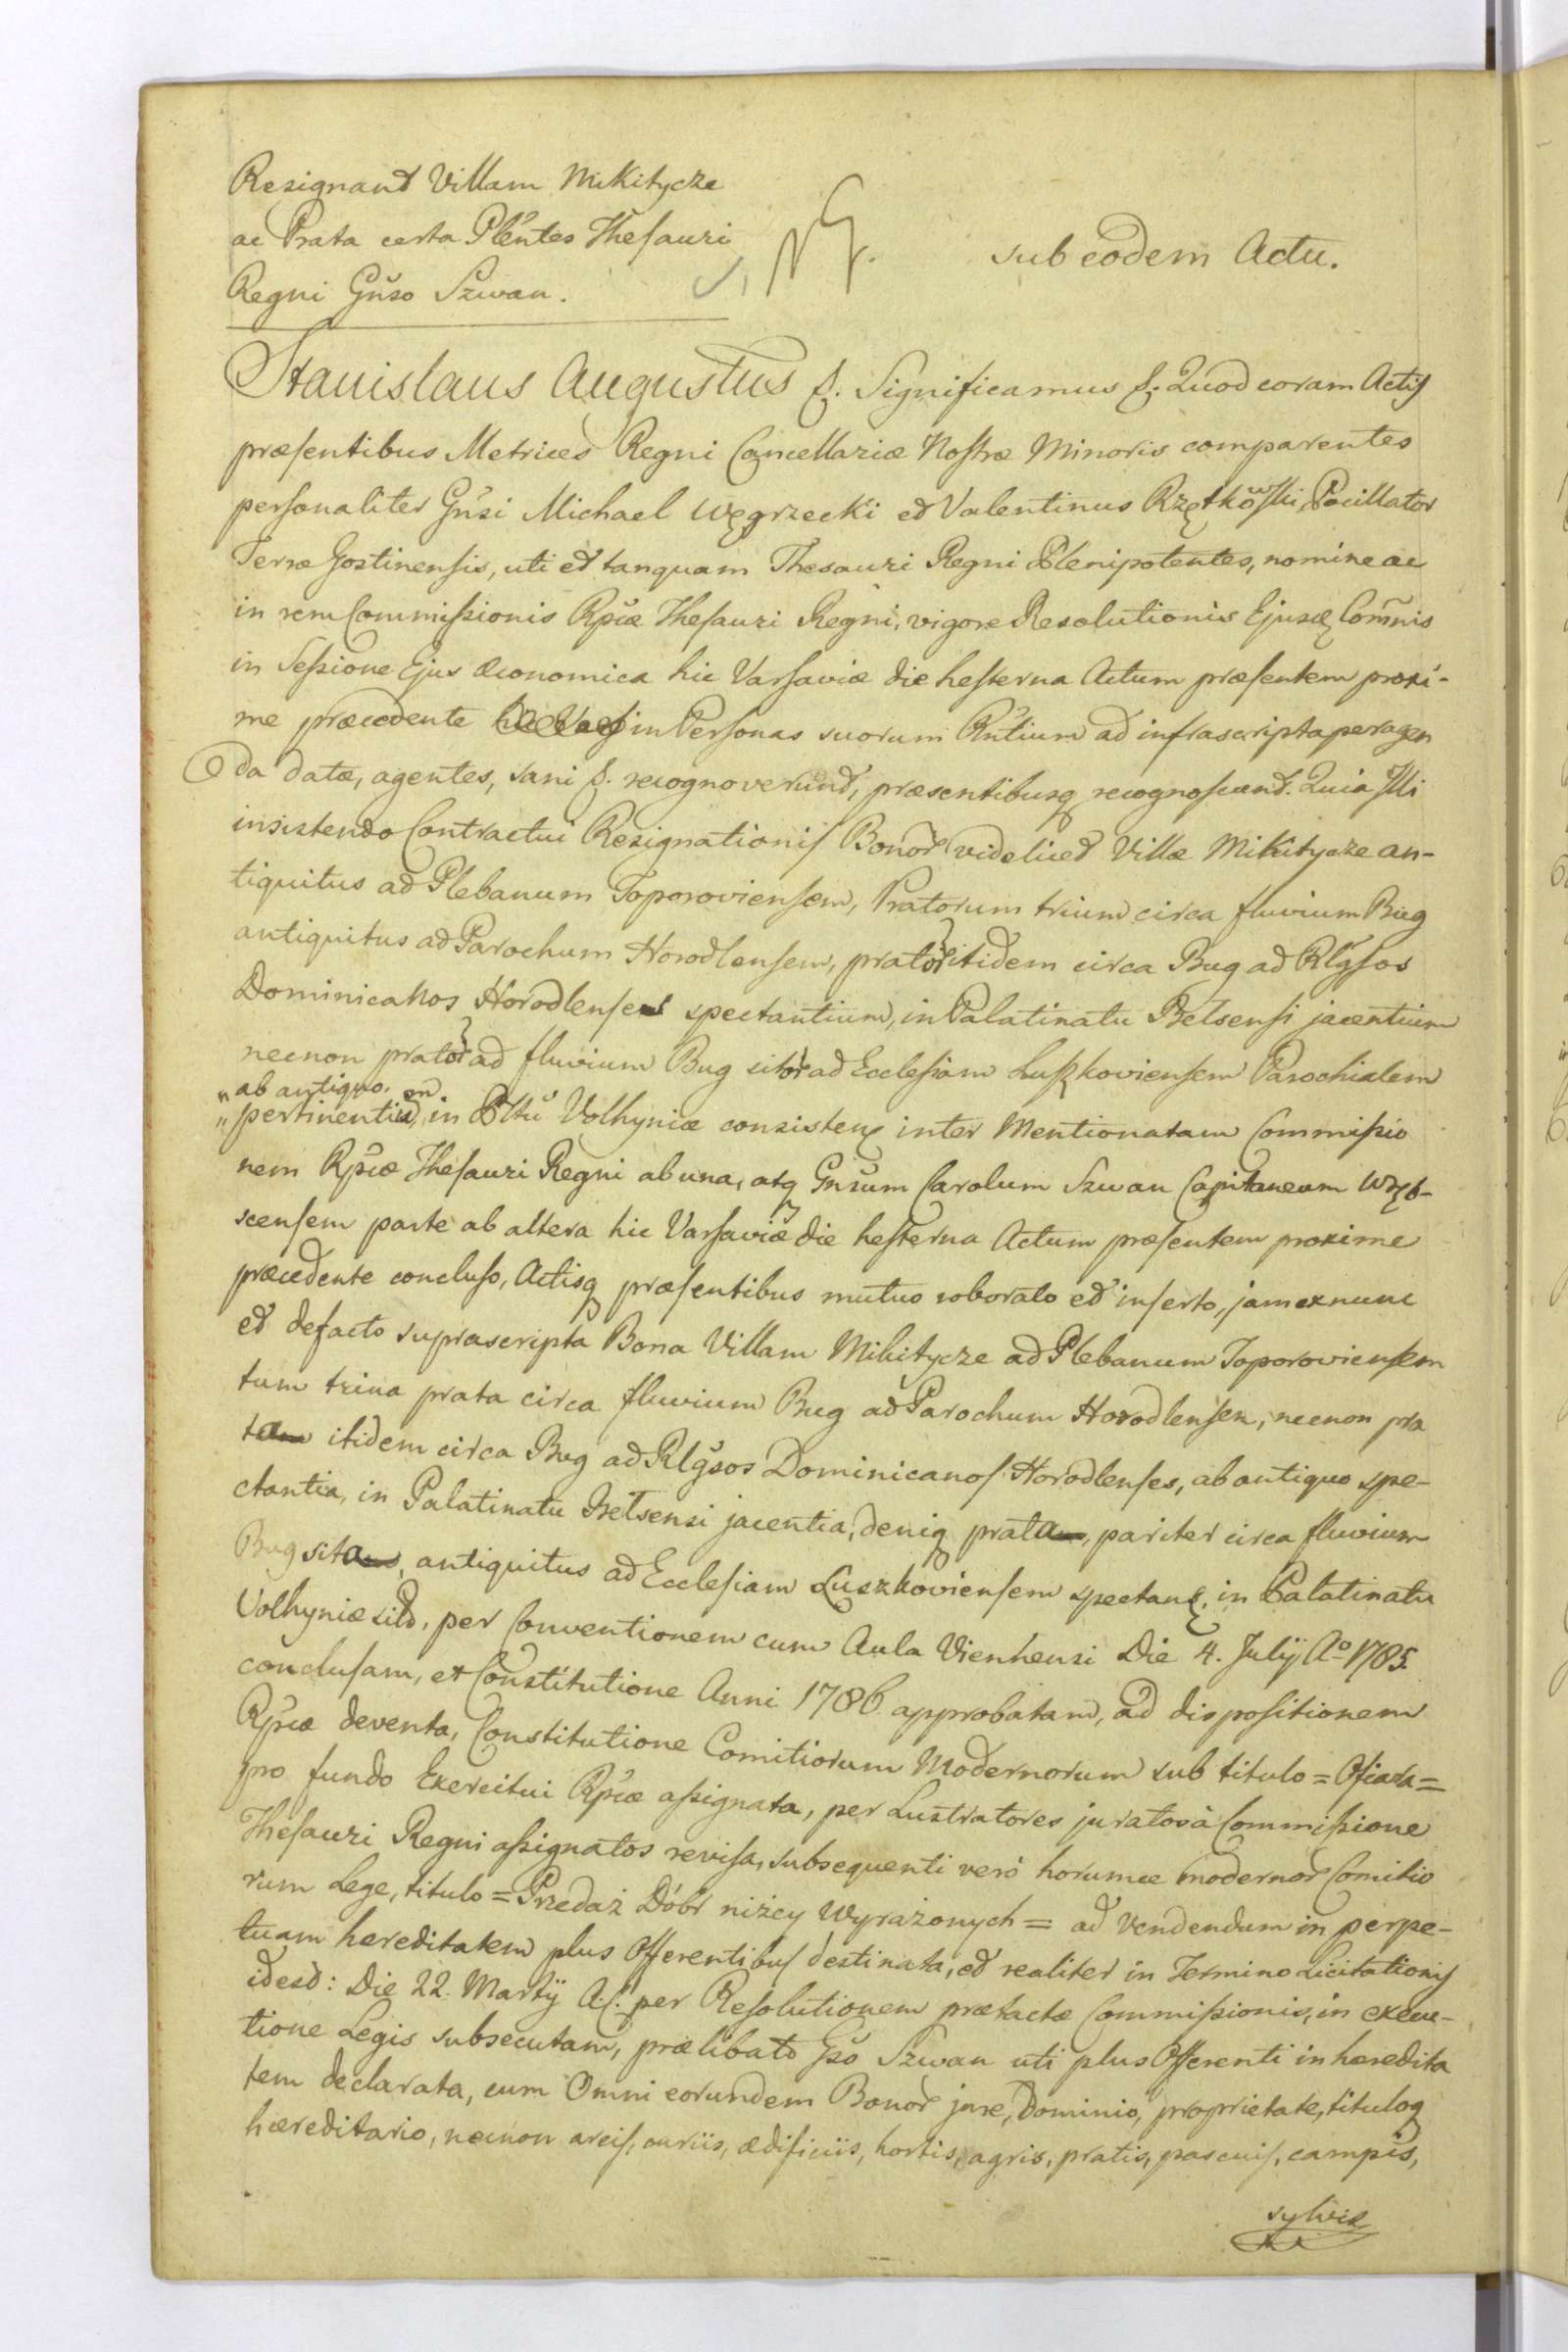 Resignant Villam Mikitycze
ac Prata certa Plentes Thesauri
Regni Gnso Szwan.
sub eodem Actu.
Stanislaus Augustus &. Significamus &. Quod coram Actis
præsentibus Metrices Regni Cancellariæ Nostræ Minoris comparentes
personaliter Gnsi Michael Węgrzecki et Valentinus Rzętkowski Pocillator
Terræ Gostinensis, uti et tanquam Thesauri Regni Plenipotentes, nomine ac
in rem Commissionis Rpcæ Thesauri Regni, vigore Resolutionis Ejusq Comnis
in Sessione Ejus Œconomica hic Varsaviæ die hesterna Actum præsentem proxi-
me præcedente in Personas suorum Rntium ad infrascripta peragen
da datæ, agentes, sani &. recognoverunt, præsentibusq recognoscunt. Quia Illi
insistendo Contractui Resignationis Bonor videlicet Villæ Mikitycze an-
tiquitus ad Plebanum Toporoviensem, Pratorum trium circa fluvium Bug
antiquitus ad Parochum Horodlensem, prator itidem circa Bug ad Rlgsos
Dominicanos Horodlenses spectantium, in Palatinatu Belsensi jacentium
necnon prator ad fluvium Bug sitor ad Ecclesiam Luszkoviensem Parochialem
" ab antiquo.
" pertinentium, in Pltu Volhyniæ consisten inter Mentionatam Commissio
nem Rpcæ Thesauri Regni ab una, atq Gnsum Carolum Szwan Capitaneum Wręb-
scensem parte ab altera hic Varsaviæ die hesterna Actum præsentem proxime
præcedente concluso, Actisq præsentibus mutuo roborato et inserto, jam ex nunc
et de facto suprascripta Bona Villam Mikitycze ad Plebanum Toporoviensem
tum trina prata circa fluvium Bug ad Parochum Horodlensem, necnon pra
ta itidem circa Bug ad Rlgsos Dominicanos Horodlenses, ab antiquo spe-
ctantia, in Palatinatu Belsensi jacentia, deniq prata, pariter circa fluvium
Bug sita, antiquitus ad Ecclesiam Luszkoviensem spectan, in Palatinatu
Volhyniæ sita, per Conventionem cum Aula Viennensi Die 4. Julij Ao 1785.
conclusam, et Constitutione Anni 1786 approbatam, ad dispositionem
Rpcæ deventa, Constitutione Comitiorum Modernorum sub titulo = Ofiara =
pro fundo Exercitui Rpcæ assignata, per Lustratores juratos à Commissione
Thesauri Regni assignatos revisa, subsequenti verò horumce modernor Comitio
rum Lege, titulo = Przedaż Dóbr niżey wyrażonych = ad vendendum in perpe-
tuam hæreditatem plus Offerentibus destinata, et realiter in Termino Licitationis
idest: Die 22. Martij A.C. per Resolutionem prætactæ Commissionis, in execu-
tione Legis subsecutam, prælibato Gso Szwan uti plus Offerenti in hæredita
tem declarata, cum Omni eorundem Bonor jure, Dominio, proprietate, tituloq
hæreditario, necnon areis, curiis, ædificiis, hortis, agris, pratis, pascuis, campis,
sylvis